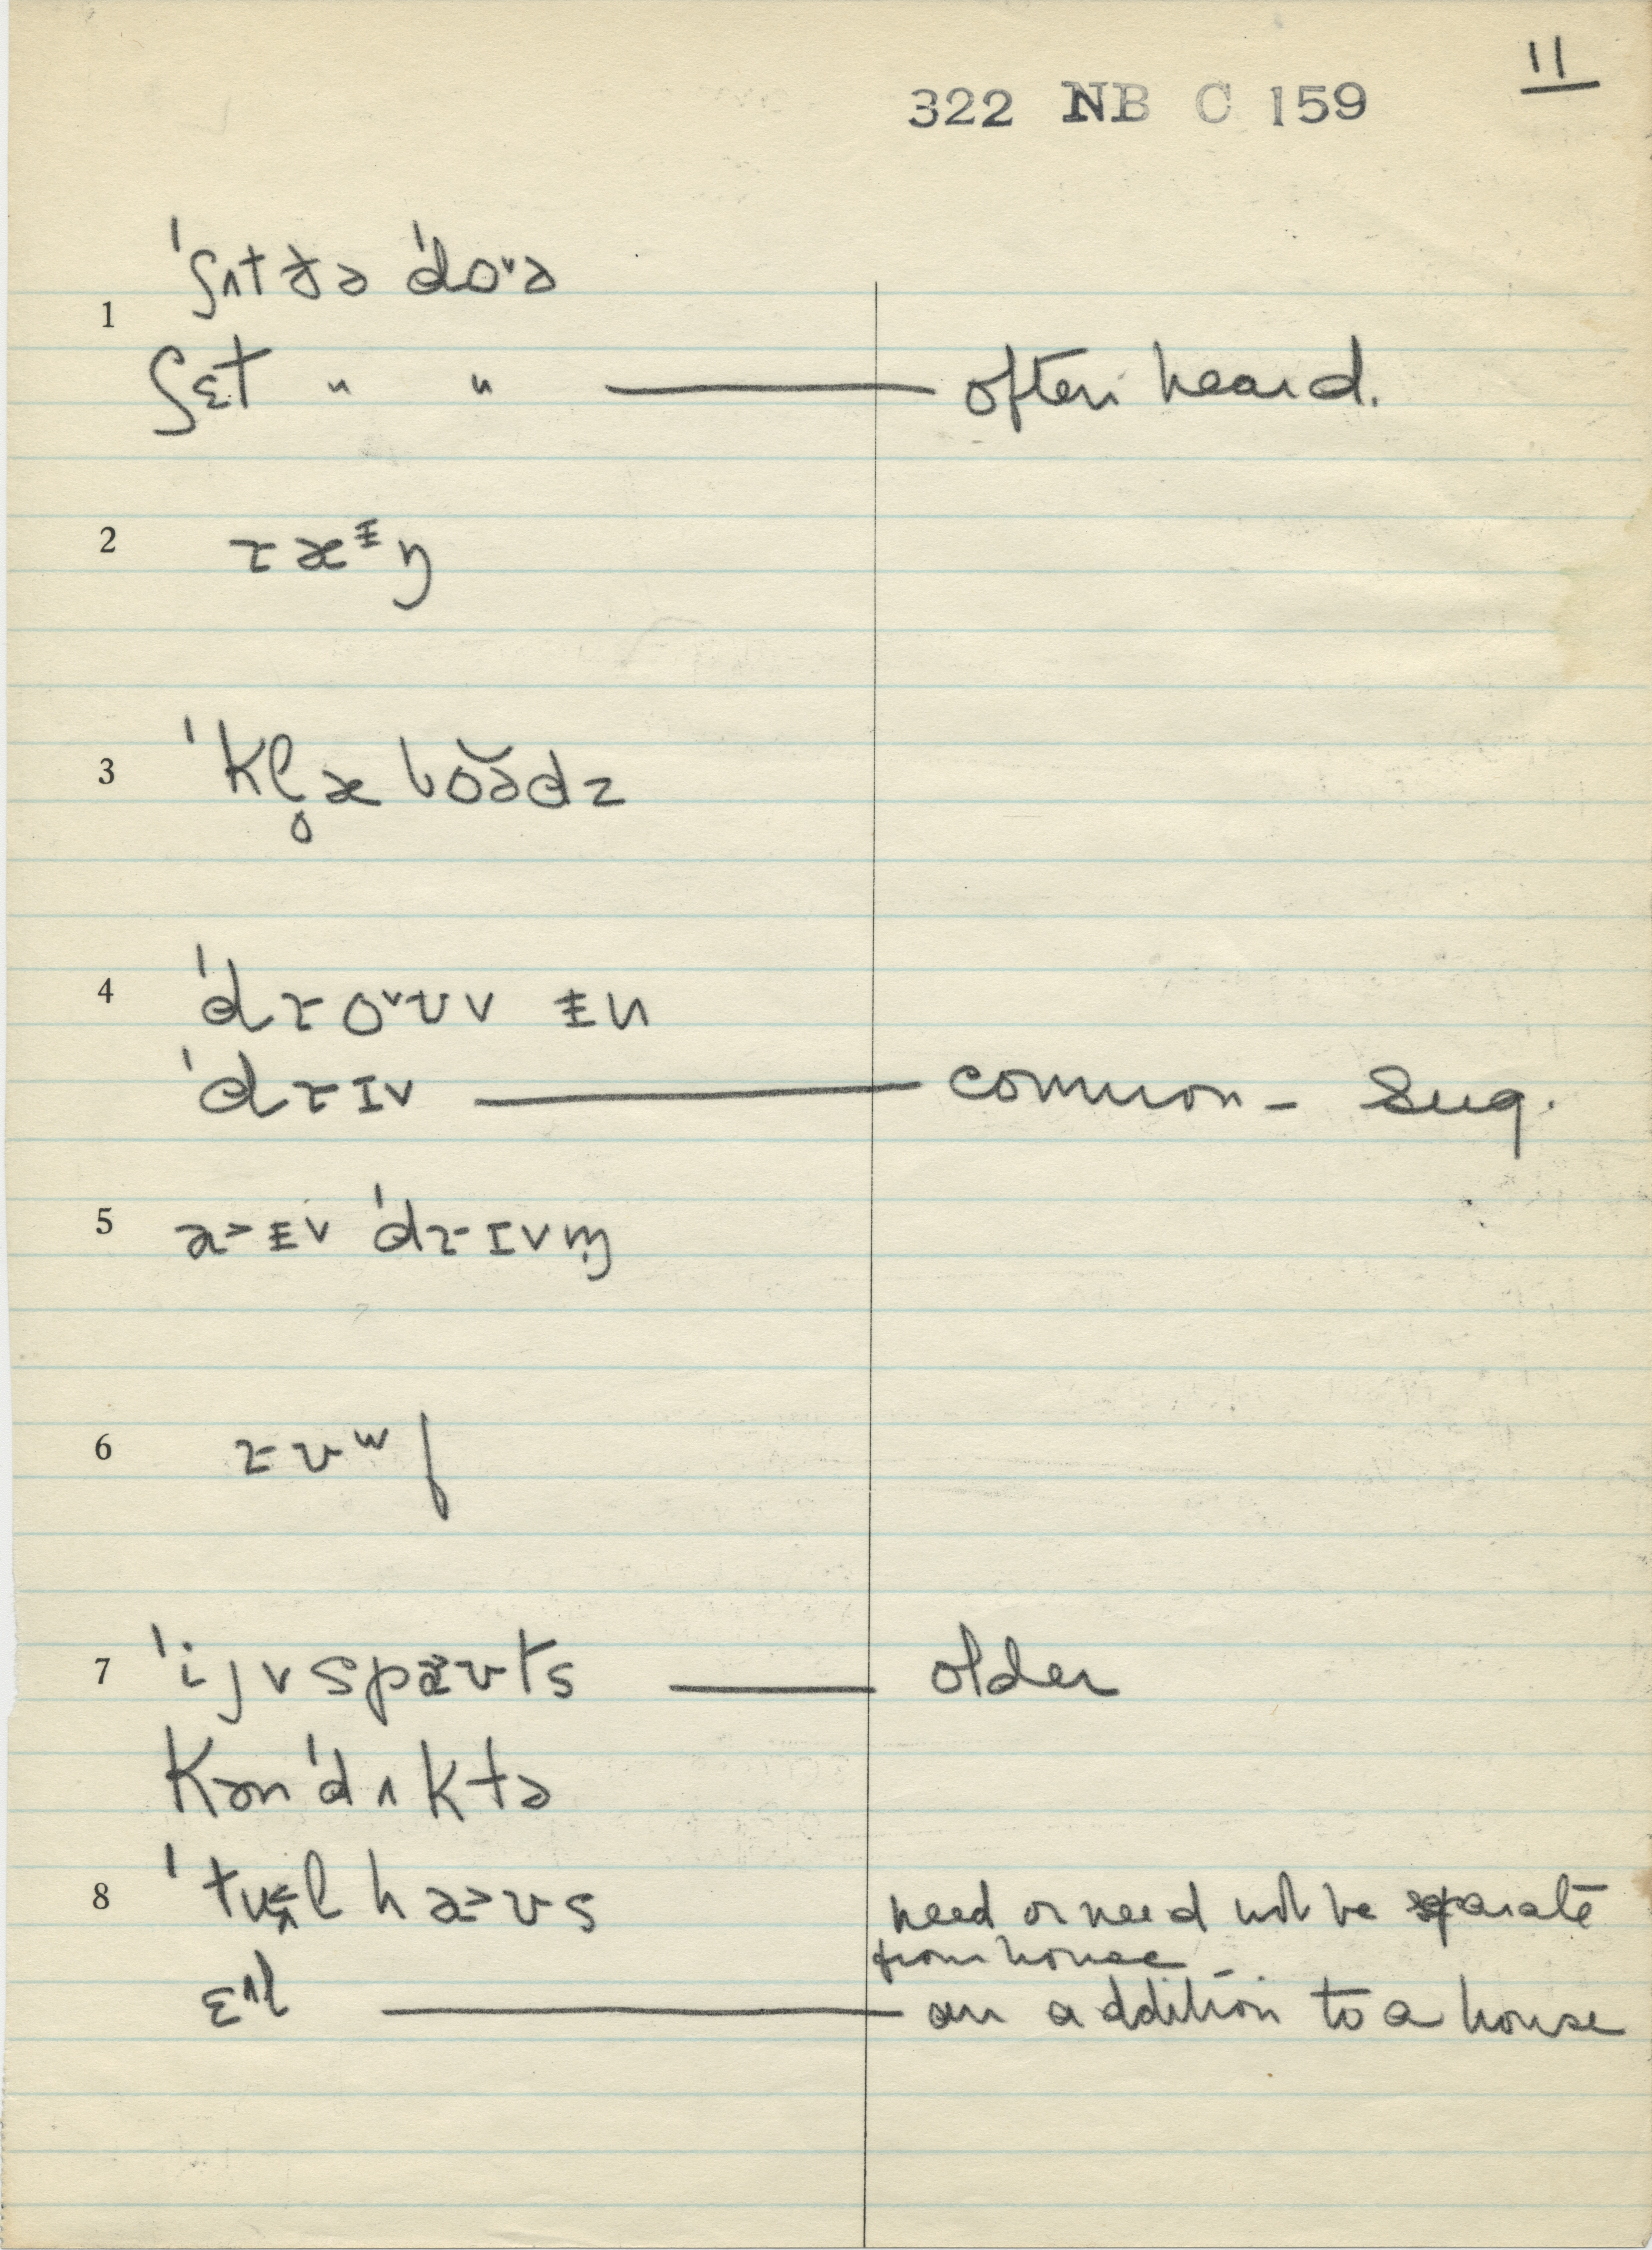 11
322 NB C 159
1 ˈʃʌt ðə ˈdo˅ə
ʃɛt " " — often heard.
2 ɾæᵻŋ
3 ˈkl̥æ bŏə̆dz
4 ˈdɾo˅ʊv ᵻn
ˈdɾɪv — common - Sug.
5 a˃ᵻv ˈdɾɪvm̩
6 ɾʊʷf
7 ˈijvspæ˃ʊts — older
kənˈdʌktə
8 ˈtʊᵻl ha˃ʊs need or need not be separate
from house
ɛˈl — an addition to a house